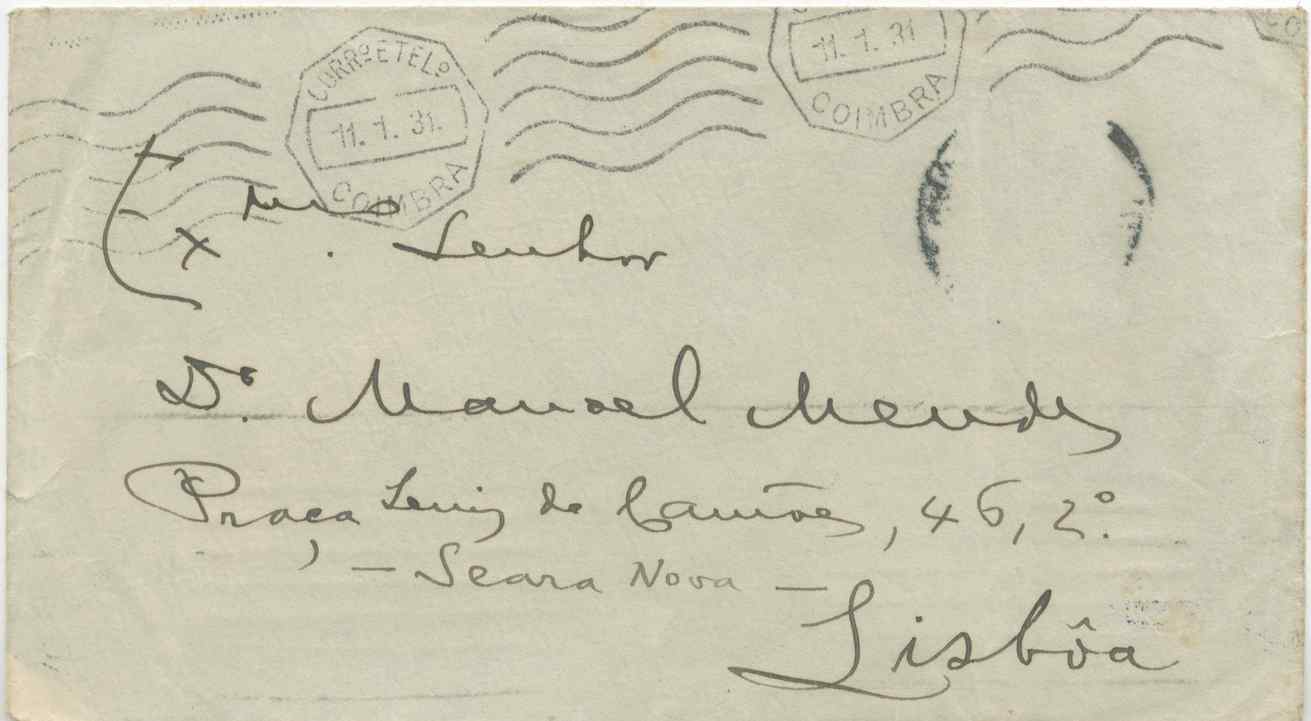 CORRº E TELº
11. 1. 31.
COIMBRA
11. 1. 31
COIMBRA
CO
Exmo. Senhor
Dr. Manoel Mendes
Praça Luiz de Camões, 46, 2º.
— Seara Nova —
Lisbôa